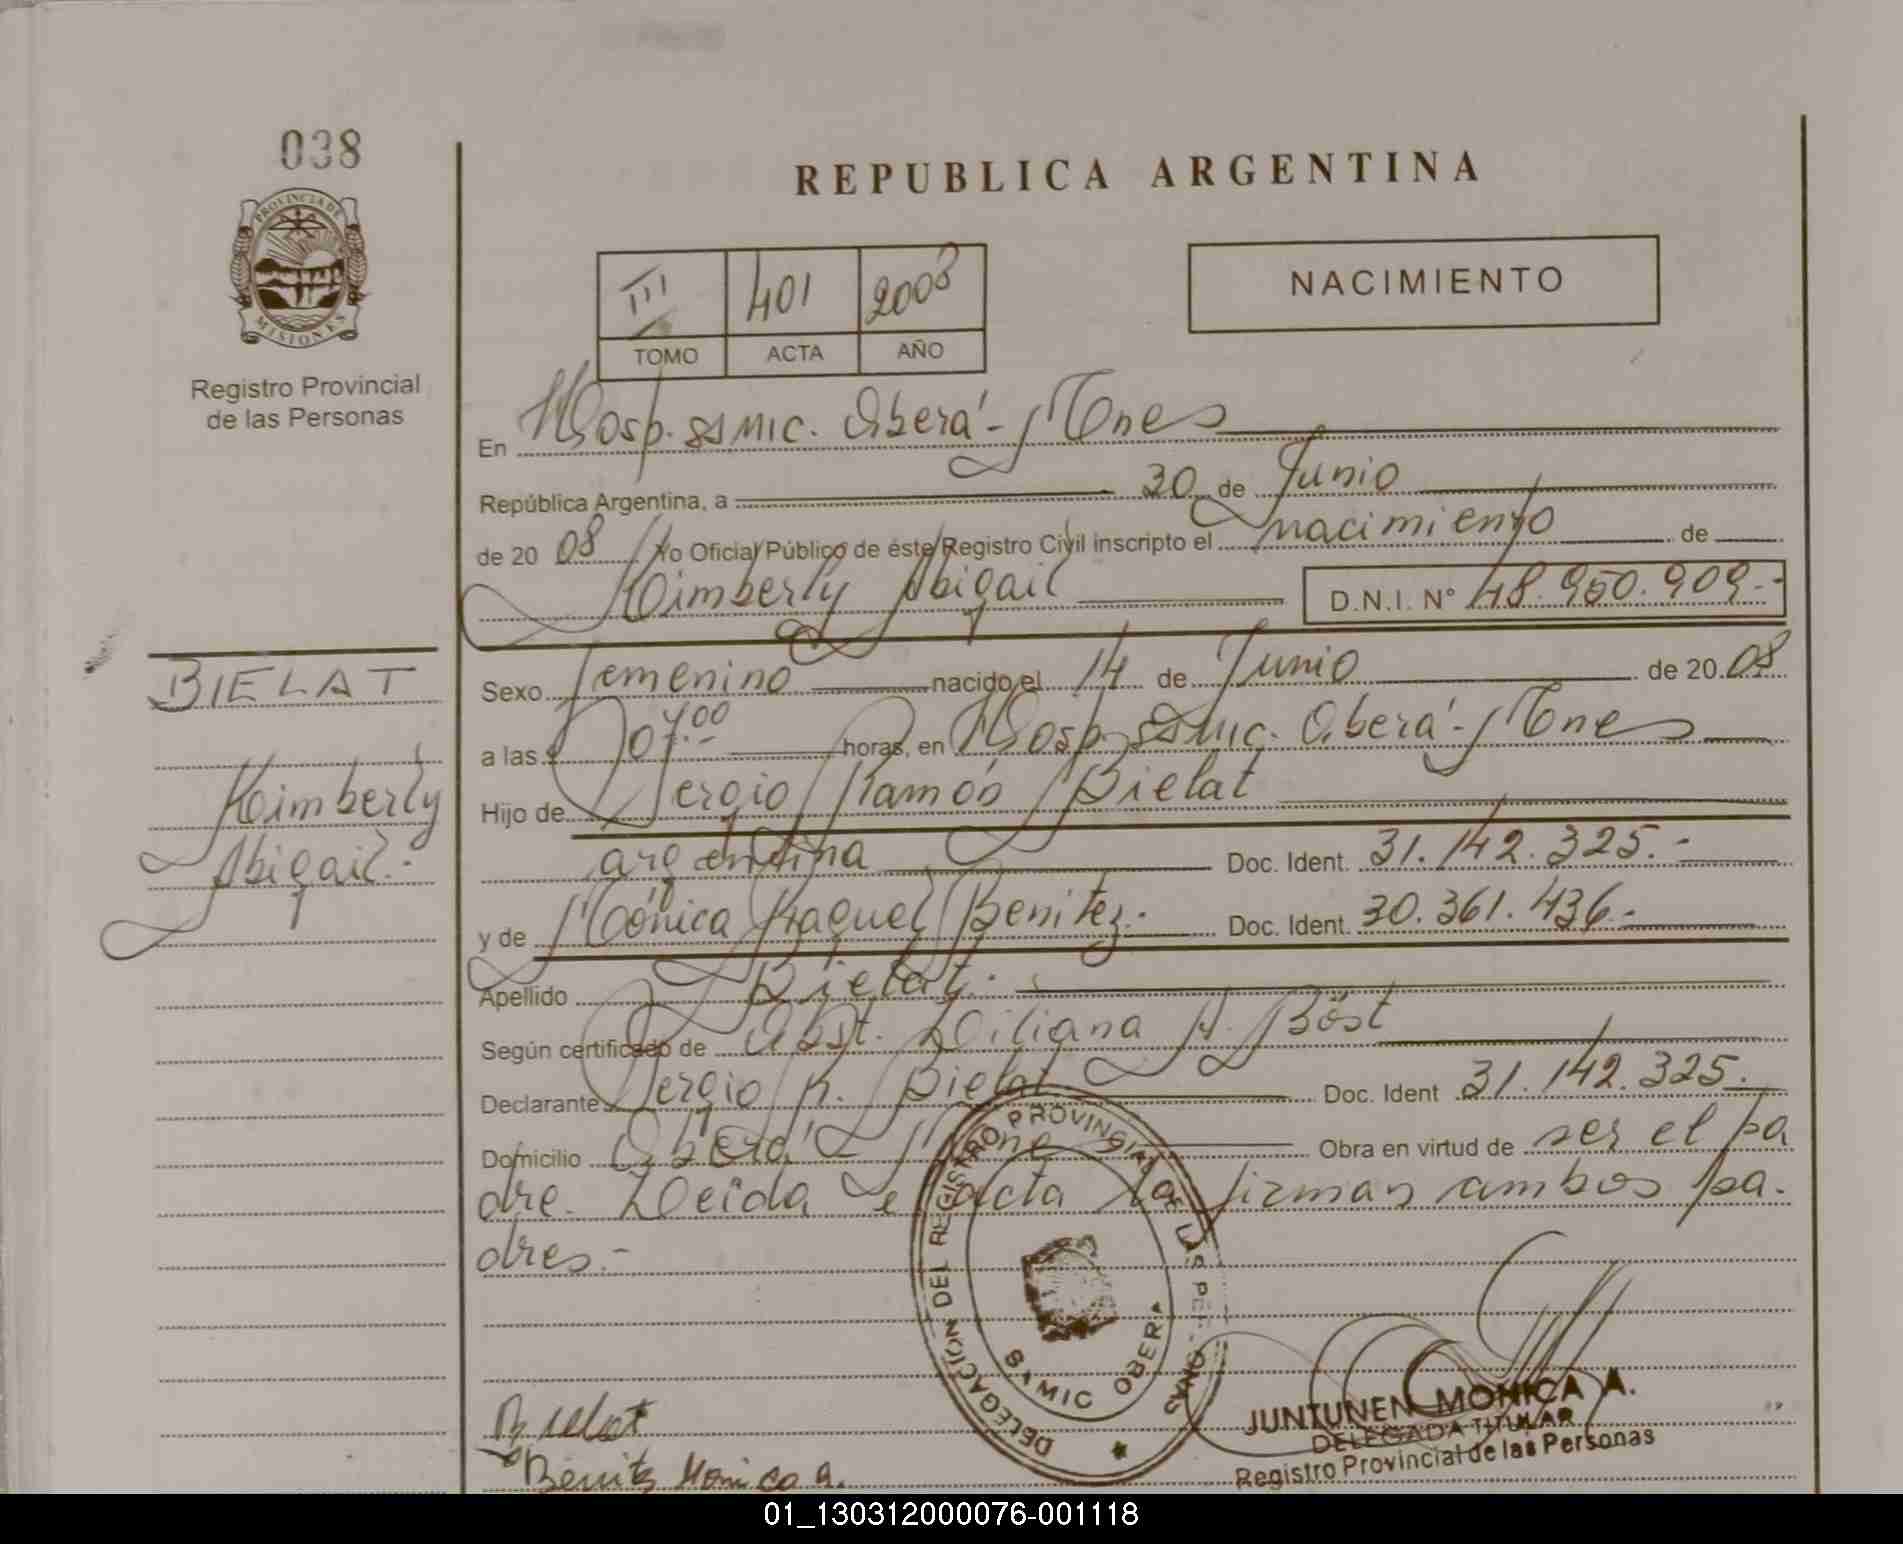 038
PROVINCIA DE
MISIONES
Registro Provincial
de las Personas
REPUBLICA ARGENTINA
III 401 2008
TOMO ACTA AÑO
NACIMIENTO
En Hosp. SAMIC. Oberá - Mnes
República Argentina, a 30 de Junio
de 20 08 Yo Oficial Público de éste Registro Civil inscripto el nacimiento de
Kimberly Abigail D.N.I. N° 48.950.909.-
BIELAT
Kimberly
Abigail.-
Sexo femenino nacido el 14 de Junio de 20 08
a las 07.00 horas, en Hosp. SAMIC. Oberá - Mnes
Hijo de Sergio Ramón Bielat
argentina Doc. Ident. 31.142.325.-
y de Mónica Raquel Benitez.- Doc. Ident. 30.361.436.-
Apellido Bielat.-
Según certificado de Obst. Liliana A. Böst
Declarante Sergio R. Bielat Doc. Ident 31.142.325.
Domicilio Oberá - Mnes Obra en virtud de ser el pa
dre. Leída el acta la firman ambos pa.
dres.-
DELEGACION DEL REGISTRO PROVINCIAL DE LAS PERSONAS
SAMIC OBERA
Bielat
Benitez Monica R.
JUNTUNEN MONICA A.
DELEGADA TITULAR
Registro Provincial de las Personas
01_130312000076-001118